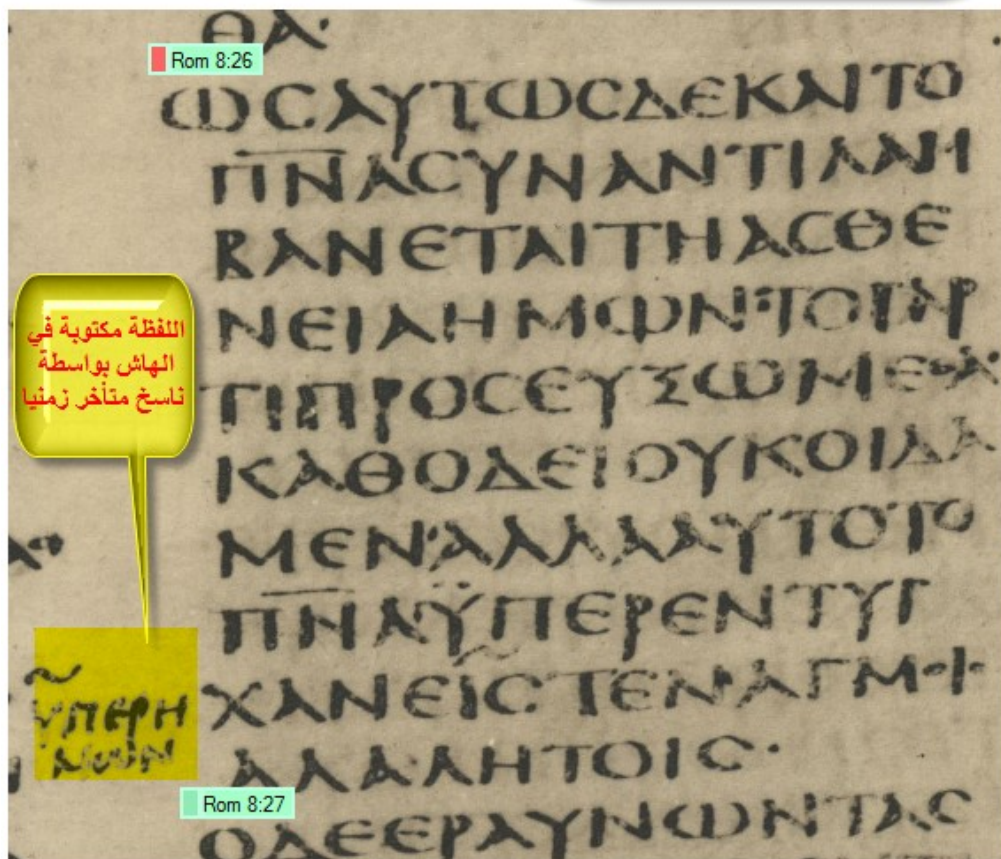 ΘΑ·
Rom 8:26
ΩϹΑΥΤΩϹΔΕΚΑΙΤΟ
Π̅Ν̅ΑϹΥΝΑΝΤΙΛΑΜ
ΒΑΝΕΤΑΙΤΗΑϹΘΕ
ΝΕΙΑΗΜΩΝ·ΤΟΓΑΡ
ΤΙΠΡΟϹΕΥΞΩΜΕΘΑ
ΚΑΘΟΔΕΙΟΥΚΟΙΔΑ
ΜΕΝ·ΑΛΛΑΑΥΤΟΤΟ
Π̅Ν̅ΑΫΠΕΡΕΝΤΥΓ
ΧΑΝΕΙϹΤΕΝΑΓΜ
ΑΛΑΛΗΤΟΙϹ·
Rom 8:27
ΟΔΕΕΡΑΥΝΩΝΤΑϹ
اللفظة مكتوبة في
الهاش بواسطة
ناسخ متأخر زمنيا
ΫΠΕΡΗ
ΜΩΝ